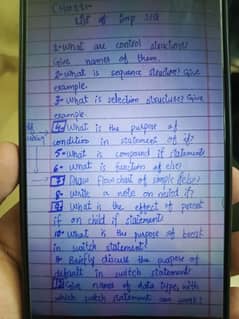 List of imp S/Q
1-What are control structures?
Give names of them.
2-what is sequence structure? Give
example.
3- what is selection structure? Give
example.
4- What is the purpose of
condition in statement of if?
5- what is compound if statement
6- what is function of else?
7- Draw flow chart of simple if else?
8- write a note on nested if?
9- What is the effect of parent
if on child if statement?
10- what is the purpose of break
in switch statement
11- Briefly discuss the purpose of
default in switch statement
12- Give names of data type, with
which switch statement can work?